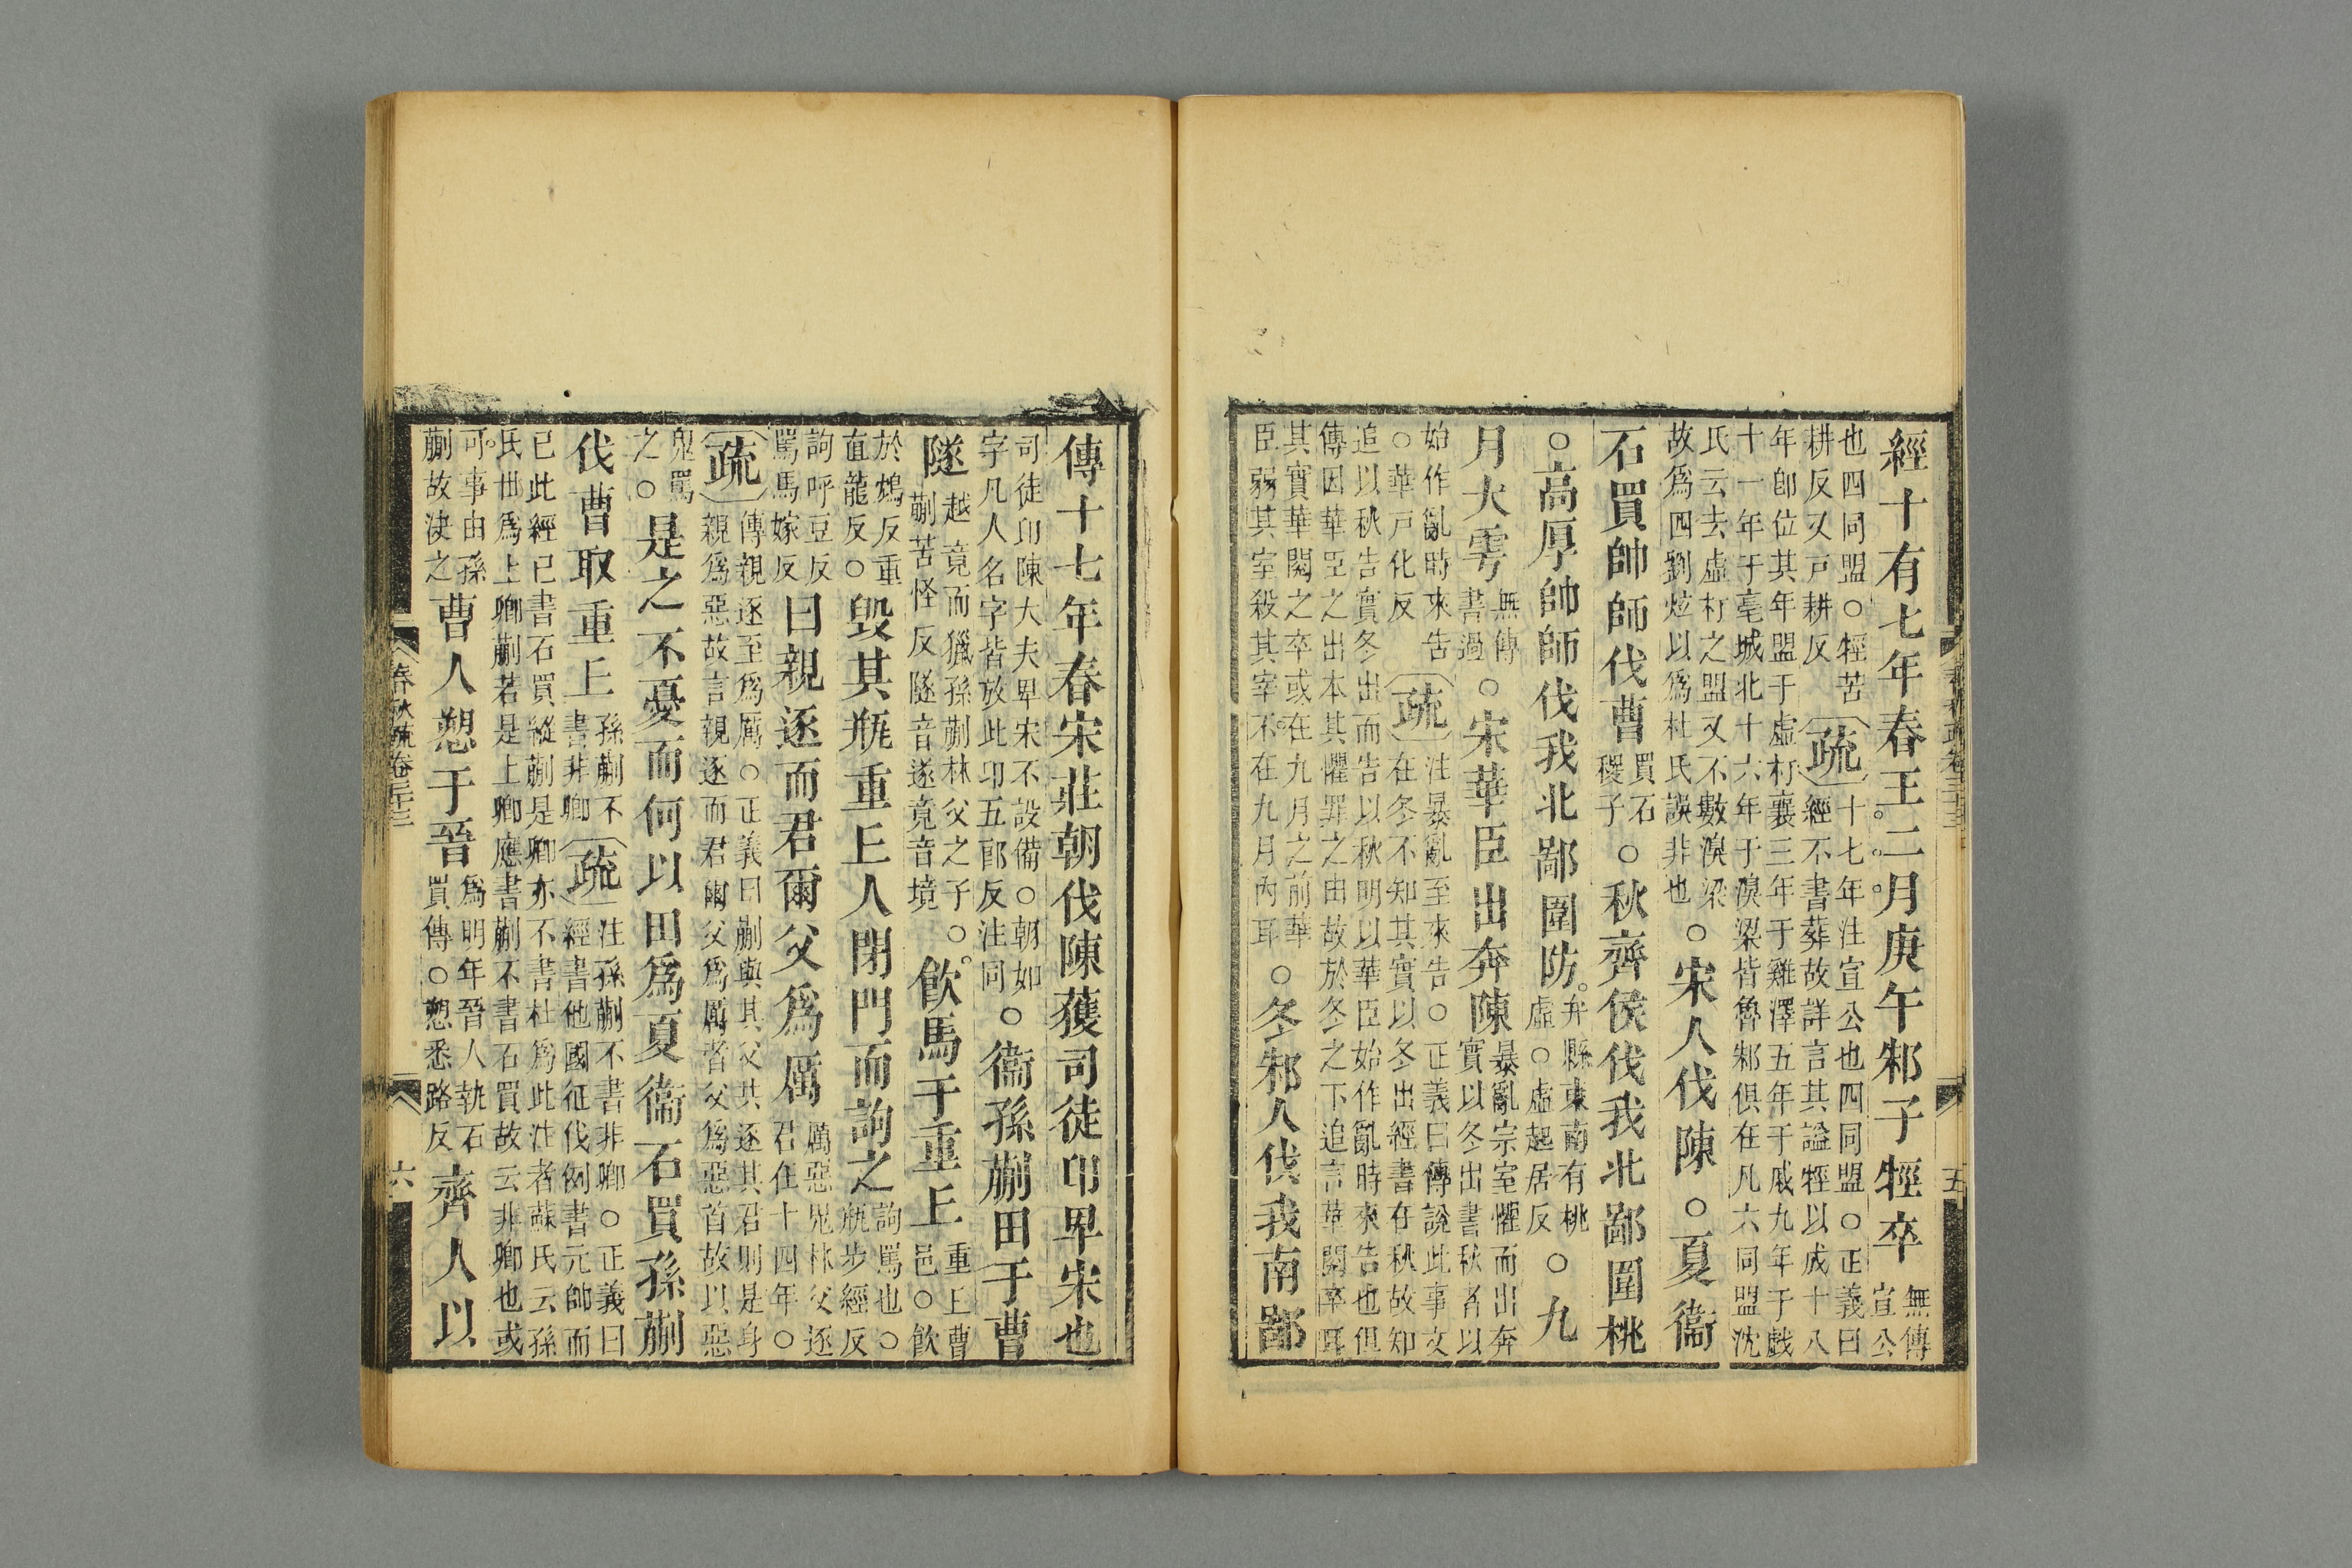 經十有七年春王二月庚午邾子牼卒無傳宣公
也四同盟○牼苦耕反又戸耕反疏十七年注宣公也四同盟○正義曰經不書葬故詳言其諡牼以成十八
年卽位其年盟于虛朾襄三年于雞澤五年于戚九年于戲十一年于亳城北十六年于溴梁皆魯邾俱在凡六同盟沈
氏云去虛朾之盟又不數溴梁故爲四劉炫以爲杜氏誤非也○宋人伐陳○夏衞
石買帥師伐曹買石稷子○秋齊侯伐我北鄙圍桃
○高厚帥師伐我北鄙圍防弁縣東南有桃虛○虛起居反○九
月大雩無傳書過○宋華臣出奔陳暴亂宗室懼而出奔實以冬出書秋者以
始作亂時來告○華戸化反疏注暴亂至來告○正義曰傳說此事文在冬不知其實以冬出經書在秋故知
追以秋告實冬出而告以秋明以華臣始作亂時來告也但傳因華臣之出本其懼罪之由故於冬之下追言華閱卒耳
其實華閱之卒或在九月之前華臣弱其室殺其宰不在九月內耳○冬邾人伐我南鄙
傳十七年春宋莊朝伐陳獲司徒卬卑宋也
司徒卬陳大夫卑宋不設備○朝如字凡人名字皆放此卬五郎反注同○衞孫蒯田于曹
隧越竟而獵孫蒯林父之子○蒯苦怪反隧音遂竟音境飮馬于重丘重丘曹邑○飮
於鴆反重直龍反○毀其瓶重丘人閉門而訽之訽罵也○瓶步經反
訽呼豆反罵馬嫁反曰親逐而君爾父爲厲厲惡鬼林父逐君在十四年○
疏傳親逐至爲厲○正義曰蒯與其父共逐其君則是身親爲惡故言親逐而君爾父爲厲者父爲惡首故以惡
鬼罵之○是之不憂而何以田爲夏衞石買孫蒯
伐曹取重丘孫蒯不書非卿疏注孫蒯不書非卿○正義曰經書他國征伐例書元帥而
已此經已書石買縱蒯是卿亦不書杜爲此注者蘇氏云孫氏世爲上卿蒯若是上卿應書蒯不書石買故云非卿也或
可事由孫蒯故決之曹人愬于晉爲明年晉人執石買傳○愬悉路反齊人以
春秋疏卷三十三
六
五